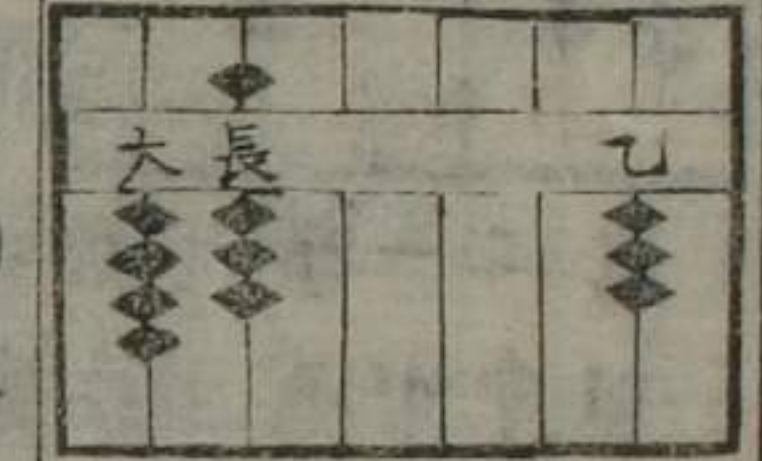 大長　乙